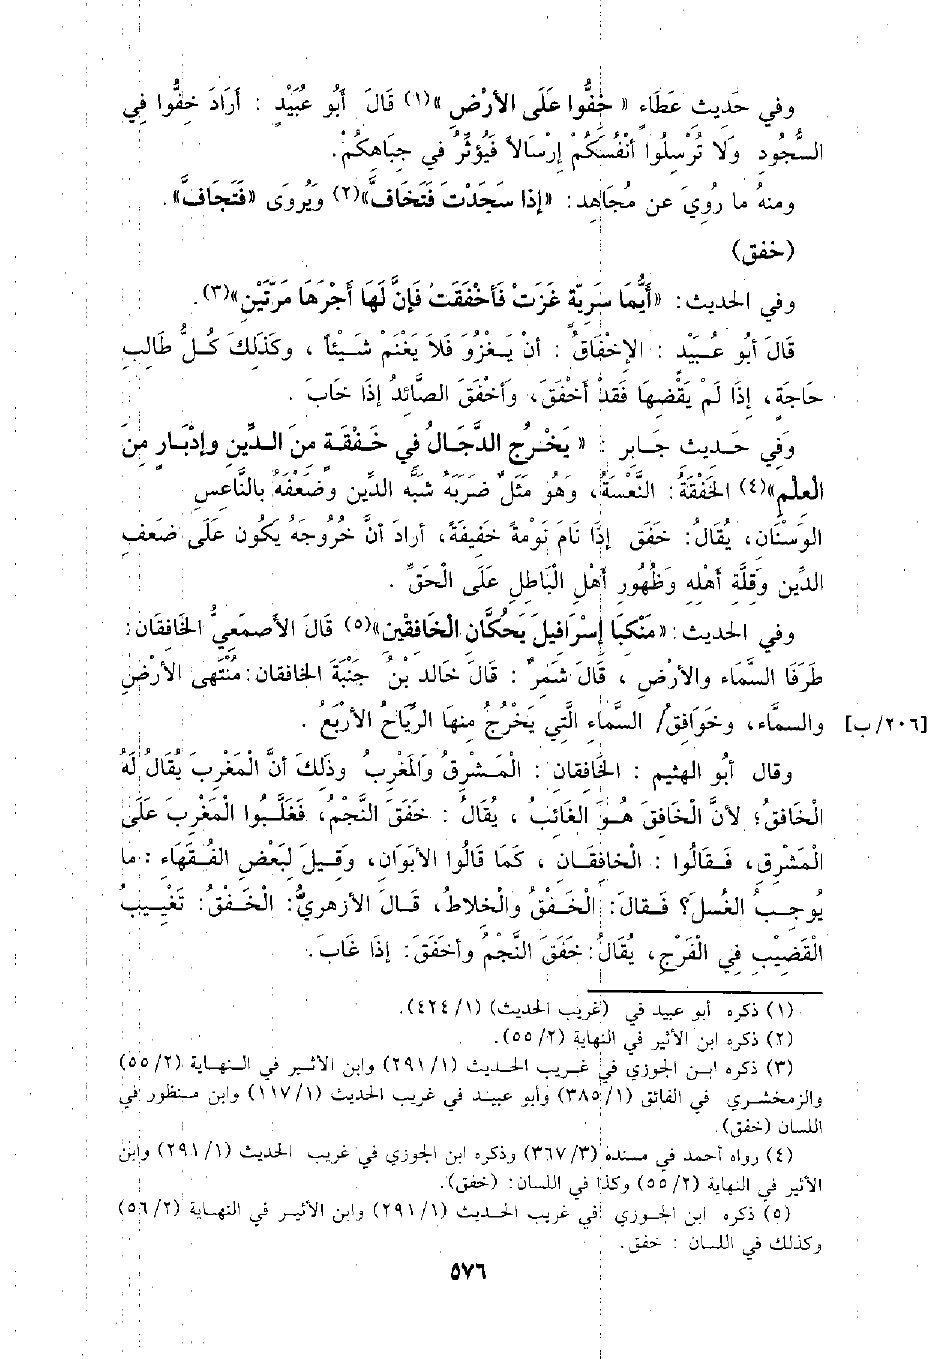 وفي حَدِيثِ عَطَاءٍ « خِفُّوا عَلَى الأرْضِ »(١) قَالَ أَبُو عُبَيْدٍ : أرَادَ خِفُّوا فِي
السُّجُودِ وَلَا تُرْسِلُوا أنْفُسَكُمْ إرْسَالاً فَيُؤثِّرُ في جِبَاهِكُمْ.
ومنهُ ما رُوِيَ عن مُجَاهِدٍ: «إذا سَجَدْتَ فَتَخَافَّ»(٢) وَيُروَى «فَتَجَافَّ» .
(خفق)
وفي الحديث: «أَيُّمَا سَرِيَّةٍ غَزَتْ فَأخْفَقَتْ فَإنَّ لَهَا أجْرَهَا مَرَّتَيْنِ»(٣).
قَالَ أبُو عُبَيْدٍ : الإخْفَاقُ : أنْ يَغْزُوَ فَلاَ يَغْنَم شَيْئاً ، وكَذَلِكَ كُلُّ طَالِبِ
حَاجَةٍ، إذَا لَمْ يَقْضِهَا فَقَدْ أخْفَقَ، وأخْفَقَ الصَّائدُ إذَا خَابَ .
وَفِي حَدِيثِ جَابِرٍ : « يَخْرُج الدَّجَالُ فِي خَفْقَةٍ مِنَ الدِّينِ وإدْبَارٍ مِنَ
الْعِلْمِ»(٤) الخَفْقَةُ: النَّعْسَةُ، وَهُو مَثَلٌ ضَرَبَهُ شَبَّه الدِّين وضَعْفَه بالنَّاعِسِ
الوَسْنَانِ، يُقَالُ: خَفَق إذَا نَام نَوْمةً خَفِيفةً، أرادَ أنَّ خُرُوجَهُ يَكُون عَلَى ضَعفِ
الدِّين وَقِلَّةِ أهْلِهِ وَظُهُورِ أهْلِ الْبَاطِلِ عَلَى الْحَقِّ .
وفي الحديث :«مَنْكِبَا إسْرَافِيلَ يَحُكَّانِ الْخَافِقَيْنِ»(٥) قَالَ الأصْمَعِيُّ الخَافِقَان:
طَرَفَا السَّمَاء والأرْضِ ، قَالَ شَمِرٌ : قَالَ خالد بْنُ جَنْبَةَ الخافقان: مُنْتَهى الأرْضِ
والسماء، وخَوَافِق/ السَّماءِ الَّتي يَخْرُجُ مِنهَا الرِّيَاحُ الأرْبَعُ . [٢٠٦/ ب]
وقال أبُو الهثيم : الخَافِقَان : الْمَشْرِقُ وَالْمَغْرِبُ وَذَلِكَ أنَّ الْمَغْرِبَ يُقَالُ لَهُ
الْخَافِقُ؛ لأنَّ الْخَافِقَ هُوَ الغَائبُ ، يُقَالُ : خَفَقَ النَّجْمُ، فَغَلَّبُوا الْمَغْرِبَ عَلَى
الْمَشْرِقِ، فَقَالُوا : الْخَافِقَان ، كَمَا قَالُوا الأبَوَانِ، وَقِيلَ لِبَعْضِ الفُقَهَاء : ما
يُوجِبُ الغُسلَ؟ فَقالَ: الْخَفْقُ والْخِلاطُ، قَالَ الأزْهَرِيُّ: الْخَفْقُ: تَغْيِيبُ
الْقَضِيبِ فِي الْفَرْجِ، يُقَالُ: خَفَقَ النَّجْمُ وأخفَقَ: إذَا غَابَ.
(١) ذكره أبو عبيد في (غريب الحديث) (١/ ٤٢٤).
(٢) ذكره ابن الأثير في النهاية (٢/ ٥٥).
(٣) ذكره ابن الجوزي في غريب الحديث (١/ ٢٩١) وابن الأثير في النهاية (٢/ ٥٥)
والزمخشري في الفائق (١/ ٣٨٥) وأبو عبيد في غريب الحديث (١/ ١١٧) وابن منظور في
اللسان (خفق).
(٤) رواه أحمد في مسنده (٣/ ٣٦٧) وذكره ابن الجوزي في غريب الحديث (١/ ٢٩١) وابن
الأثير في النهاية (٢/ ٥٥) وكذا في اللسان: (خفق).
(٥) ذكره ابن الجوزي في غريب الحديث (١/ ٢٩١) وابن الأثير في النهاية (٢/ ٥٦)
وكذلك في اللسان : خفق.
٥٧٦